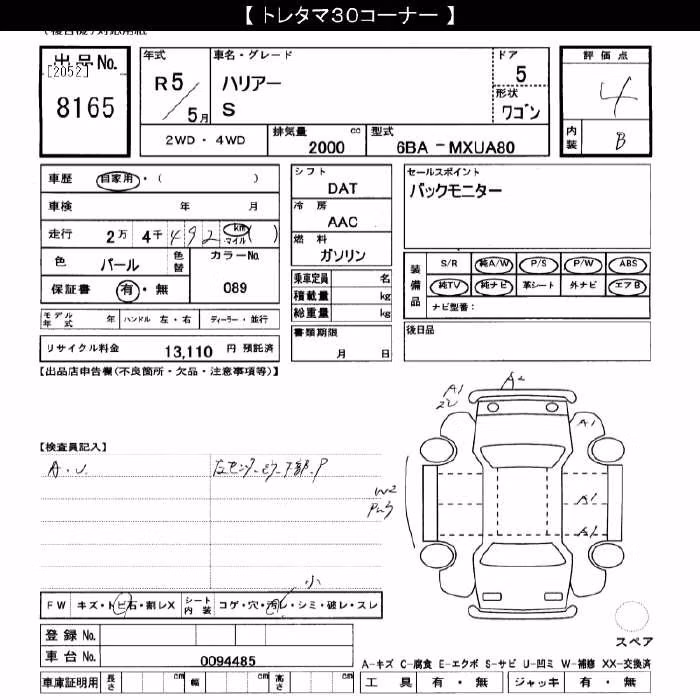 【 トレタマ30コーナー 】
出品No.
[2052]
8165
年式
R5
5月
車名・グレード
ハリアー
S
ドア
5
形状
ワゴン
評価点
4
内装
B
2WD・4WD
排気量 cc
2000
型式
6BA－MXUA80
車歴 自家用・( )
車検 年 月
走行 2万 4千 492 km マイル ( )
色 パール 色替
カラーNo.
089
保証書 有・無
モデル年式 年 ハンドル 左・右 ディーラー・並行
リサイクル料金 13,110 円 預託済
シフト
DAT
冷房
AAC
燃料
ガソリン
乗車定員 名
積載量 kg
総重量 kg
書類期限
月 日
セールスポイント
バックモニター
装備品
S/R 純A/W P/S P/W ABS
純TV 純ナビ 革シート 外ナビ エアB
ナビ型番：
後日品
【出品店申告欄(不良箇所・欠品・注意事項等)】
【検査員記入】
A・U
A2
A1
A1
W2
A1
A1
小
FW キズ・トビ石・割レX シート内装 コゲ・穴・汚レ・シミ・破レ・スレ
登録No.
車台No. 0094485
車庫証明用 長さ cm 幅 cm 高さ cm
スペア
A-キズ C-腐食 E-エクボ S-サビ U-凹ミ W-補修 XX-交換済
工具 有・無 ジャッキ 有・無